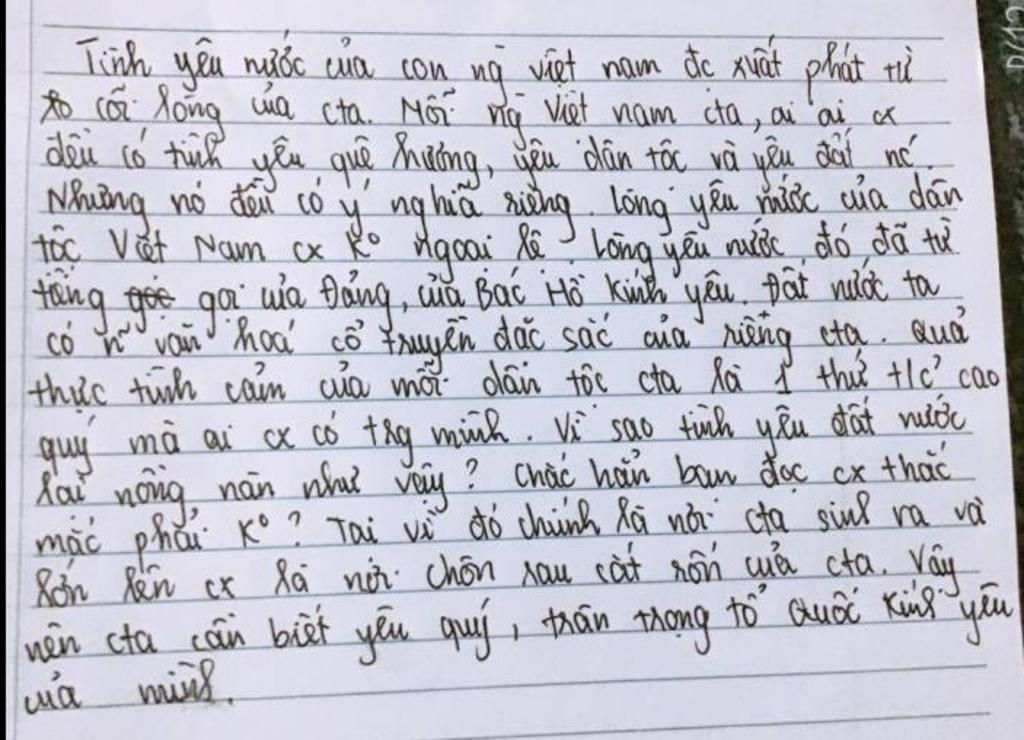 Tình yêu nước của con ng việt nam đc xuất phát từ
cõi lòng của cta. Mỗi ng Việt nam cta, ai ai cx
đều có tình yêu quê hương, yêu dân tộc và yêu đất nc.
Nhưng nó đều có ý nghĩa riêng. lòng yêu nước của dân
tộc Việt Nam cx K° ngoại lệ. Lòng yêu nước đó đã từ
tiếng gọi của Đảng, của Bác Hồ Kính yêu. Đất nước ta
có n~ văn hoá cổ truyền đặc sắc của riêng cta. Quả
thực tình cảm của mỗi dân tộc cta là 1 thứ t/c' cao
quý mà ai cx có trg mình. Vì sao tình yêu đất nước
lại nồng nàn như vậy? Chắc hẳn bạn đọc cx thắc
mắc phải K°? Tại vì đó chính là nơi cta sinh ra và
lớn lên cx là nơi chôn rau cắt rốn của cta. Vậy
nên cta cần biết yêu quý, trân trọng tổ Quốc Kính yêu
của mình.